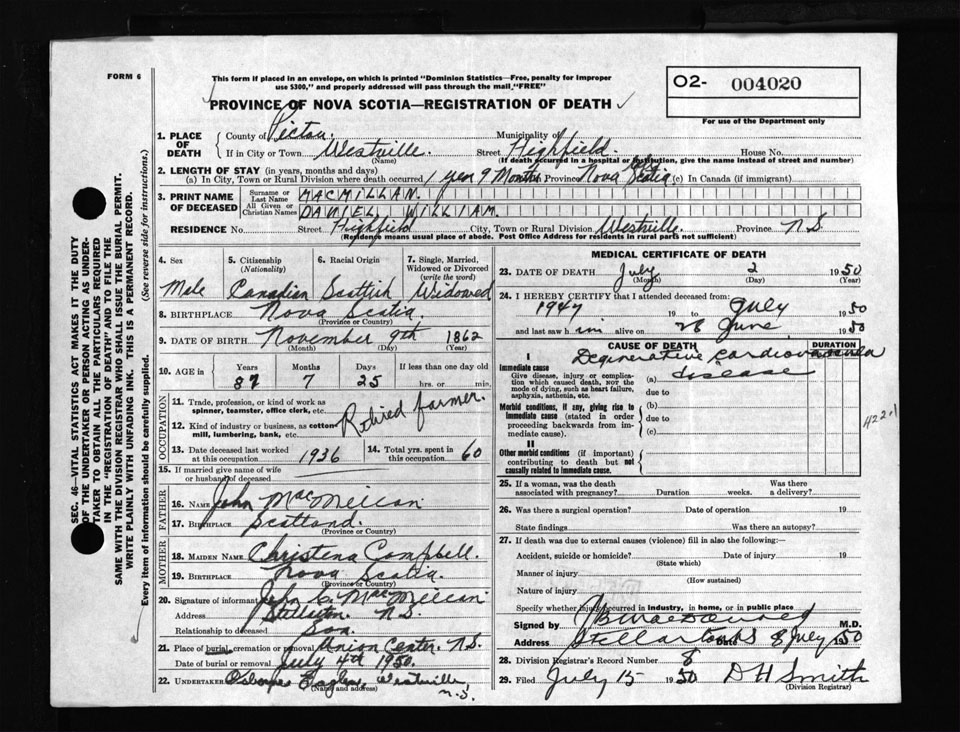 FORM 6
This form if placed in an envelope, on which is printed "Dominion Statistics—Free, penalty for improper
use $300," and properly addressed will pass through the mail "FREE"
O2- 004020
For use of the Department only
PROVINCE OF NOVA SCOTIA—REGISTRATION OF DEATH
1. PLACE OF DEATH
County of Pictou. Municipality of
If in City or Town Westville. Street Highfield. House No.
(Name) (If death occurred in a hospital or institution, give the name instead of street and number)
2. LENGTH OF STAY (in years, months and days)
(a) In City, Town or Rural Division where death occurred 1 year 9 Months Province Nova Scotia (c) In Canada (if immigrant)
3. PRINT NAME OF DECEASED
Surname or Last Name MACMILLAN.
All Given or Christian Names DANIEL WILLIAM.
RESIDENCE No. Street Highfield City, Town or Rural Division Westville. Province N S
(Residence means usual place of abode. Post Office Address for residents in rural parts not sufficient)
4. Sex 5. Citizenship (Nationality) 6. Racial Origin 7. Single, Married, Widowed or Divorced (write the word)
Male Canadian Scottish Widowed
8. BIRTHPLACE Nova Scotia.
(Province or Country)
9. DATE OF BIRTH November 9th 1862
(Month) (Day) (Year)
10. AGE in Years Months Days If less than one day old
87 7 25 hrs. or min.
OCCUPATION
11. Trade, profession, or kind of work as
spinner, teamster, office clerk, etc. Retired farmer.
12. Kind of industry or business, as cotton
mill, lumbering, bank, etc.
13. Date deceased last worked at this occupation 1936 14. Total yrs. spent in this occupation 60
15. If married give name of wife
or husband of deceased
FATHER
16. NAME John MacMillan
17. BIRTHPLACE Scotland.
(Province or Country)
MOTHER
18. MAIDEN NAME Christena Campbell.
19. BIRTHPLACE Nova Scotia.
(Province or Country)
20. Signature of informant John C. MacMillan
Address Stellarton N.S.
Relationship to deceased Son.
21. Place of burial, cremation or removal Union Center. N.S.
Date of burial or removal July 4th 1950.
22. UNDERTAKER Westville, N.S.
(Name and address)
MEDICAL CERTIFICATE OF DEATH
23. DATE OF DEATH July 2 1950
(Month) (Day) (Year)
24. I HEREBY CERTIFY that I attended deceased from:
1947 19 to July 1950
and last saw him alive on 28 June 1950
CAUSE OF DEATH DURATION
I
Immediate cause
Give disease, injury or complication which caused death, NOT the mode of dying, such as heart failure, asphyxia, asthenia, etc.
(a) Degenerative Cardiovascular disease
due to
Morbid conditions, if any, giving rise to immediate cause (stated in order proceeding backwards from immediate cause).
(b)
due to
(c)
422.1
II
Other morbid conditions (if important) contributing to death but not causally related to immediate cause.
25. If a woman, was the death
associated with pregnancy? Duration weeks. Was there a delivery?
26. Was there a surgical operation? Date of operation 19
State findings Was there an autopsy?
27. If death was due to external causes (violence) fill in also the following:—
Accident, suicide or homicide? Date of injury 19
(State which)
Manner of injury
(How sustained)
Nature of injury
Specify whether injury occurred in industry, in home, or in public place
Signed by M.D.
Address Stellarton NS Date 8 July 1950
28. Division Registrar's Record Number 8
29. Filed July 15 1950 D H Smith
(Division Registrar)
SEC. 46—VITAL STATISTICS ACT MAKES IT THE DUTY
OF THE UNDERTAKER OR PERSON ACTING AS UNDER-
TAKER TO OBTAIN ALL THE PARTICULARS REQUIRED
IN THE "REGISTRATION OF DEATH" AND TO FILE THE
SAME WITH THE DIVISION REGISTRAR WHO SHALL ISSUE THE BURIAL PERMIT.
WRITE PLAINLY WITH UNFADING INK. THIS IS A PERMANENT RECORD.
Every item of information should be carefully supplied. (See reverse side for instructions.)